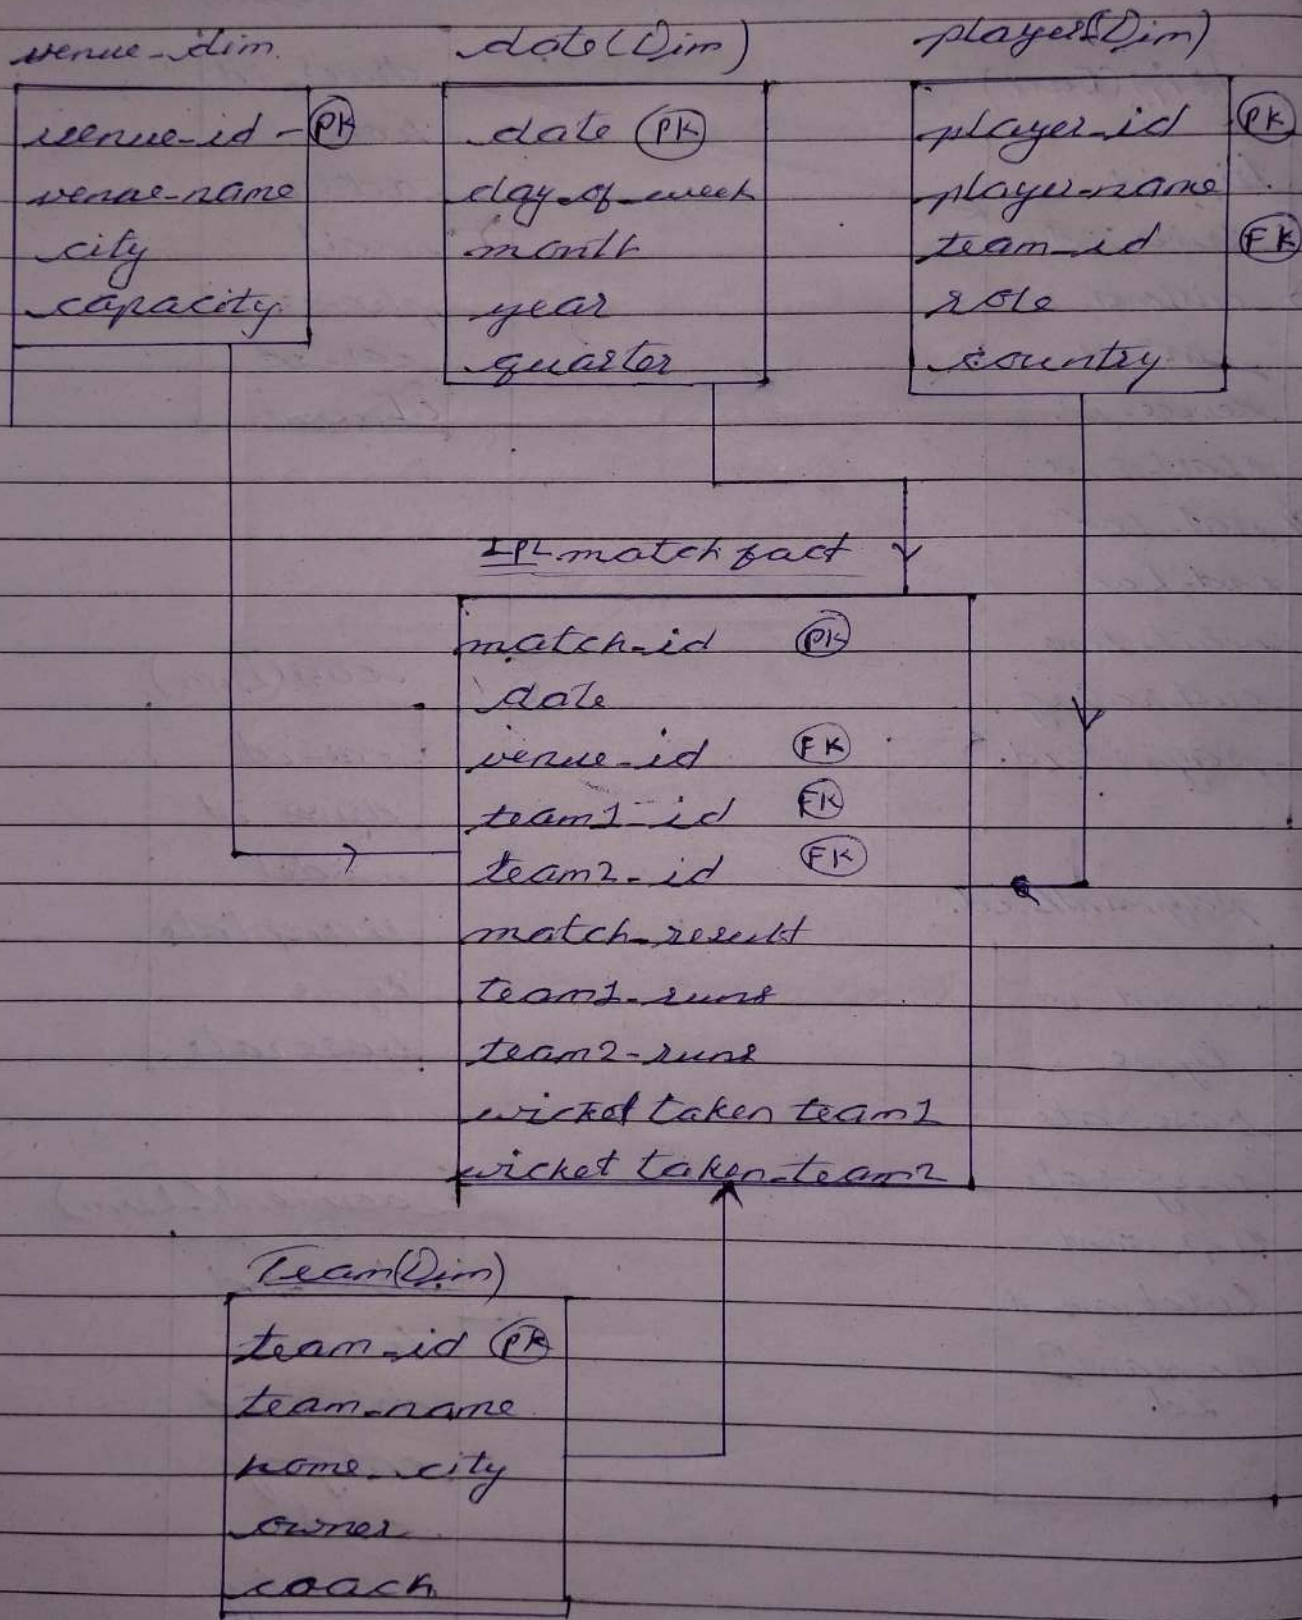 venue-dim
venue-id - PK
venue-name
city
capacity
date (Dim)
date PK
day-of-week
month
year
quarter
player(Dim)
player-id PK
player-name
team-id FK
role
country
IPL match fact
match-id PK
date
venue-id FK
team1-id FK
team2-id FK
match-result
team1-runs
team2-runs
wicket taken team1
wicket taken-team2
Team(Dim)
team-id PK
team-name
home-city
owner
coach